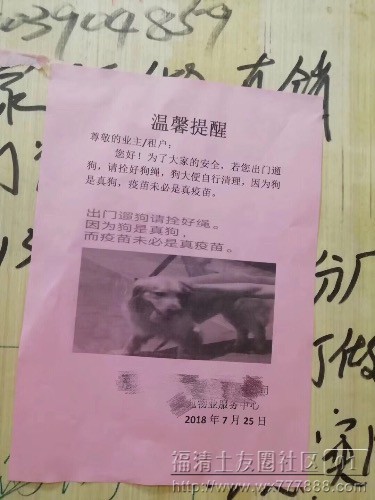 03904859
直销
温馨提醒
尊敬的业主/租户：
您好！为了大家的安全，若您出门遛
狗，请拴好狗绳，狗大便自行清理，因为狗
是真狗，疫苗未必是真疫苗。
出门遛狗请拴好绳。
因为狗是真狗，
而疫苗未必是真疫苗。
13
分厂
做
司
物业服务中心
2018 年 7 月 25 日
福清土友圈社区
www.yx777888.com